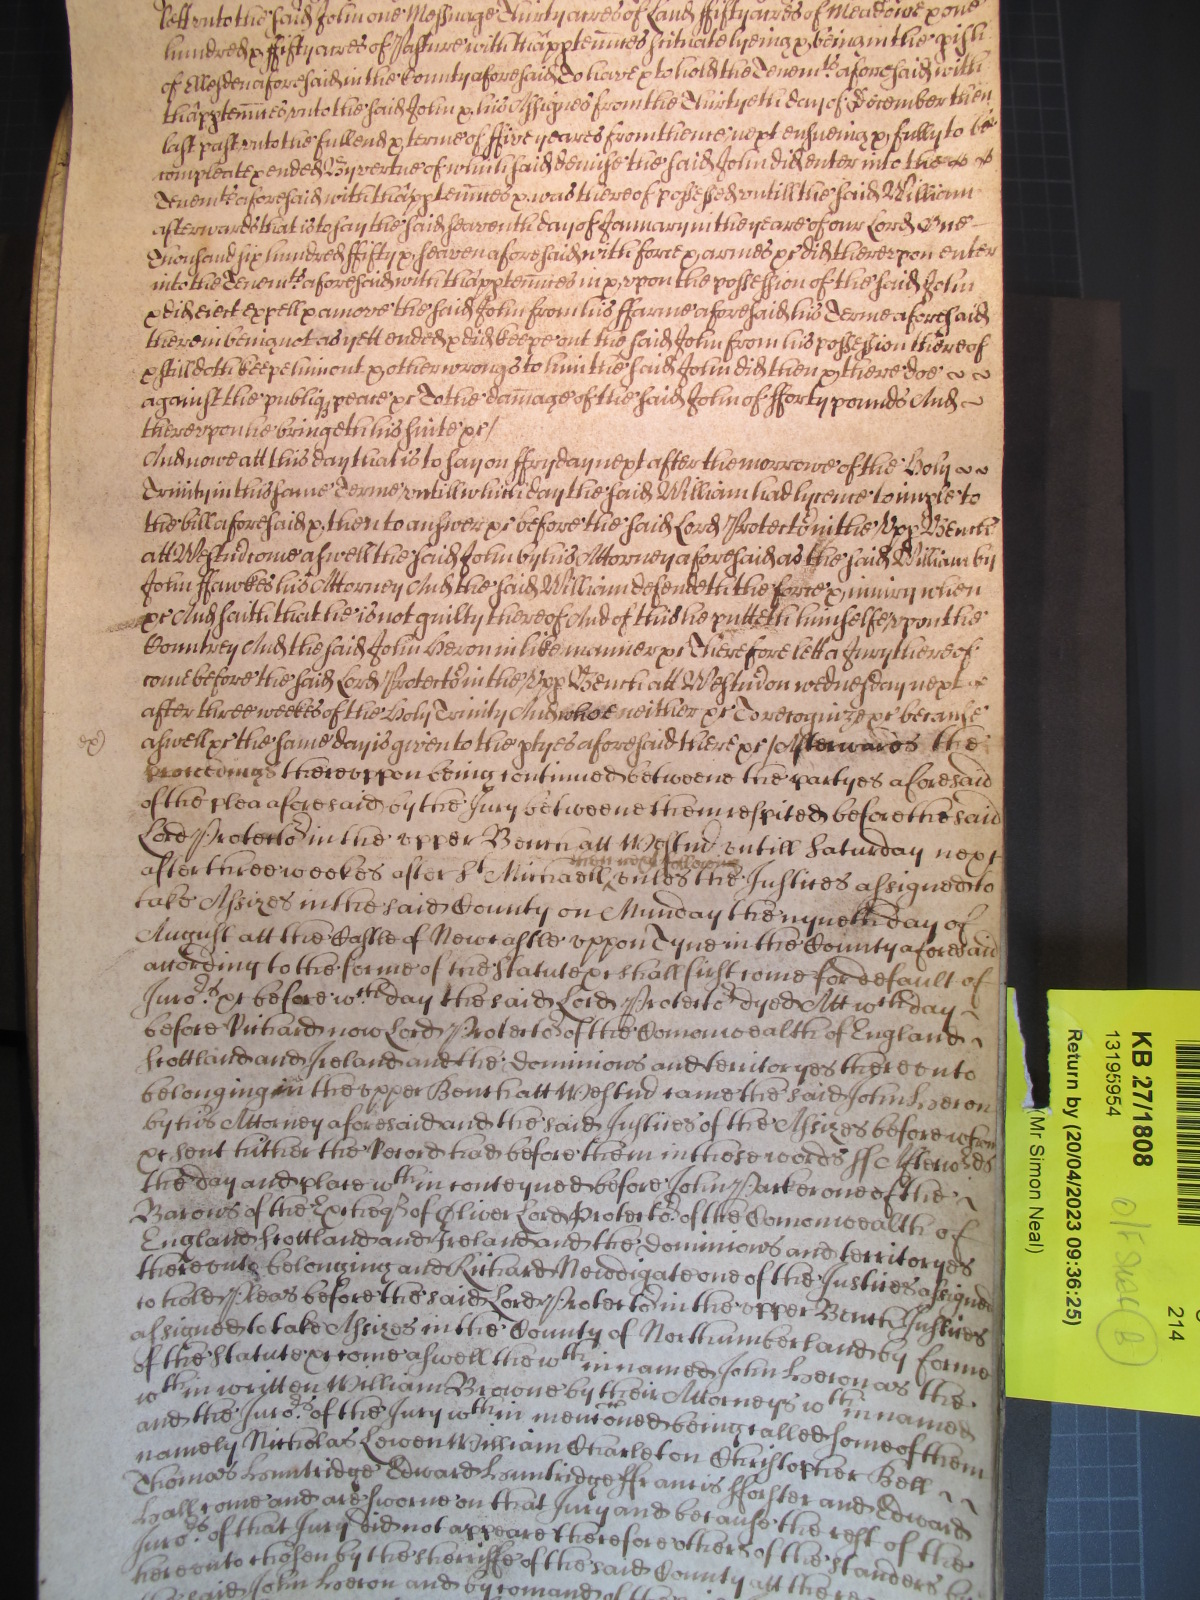 lett unto the said John one Messuage Thirty acres of Land ffifty acres of Meadowe & one
hundred & ffifty acres of Pasture with thapptennces scituate lyeing & being in the pish
of Elesden aforesaid in the County aforesaid To have & to hold the Tenemts aforesaid with
thapptennces unto the said John & his Assignes from the Thirtyeth day of December then
last past unto the full end & terme of ffive yeares from thence next ensueing & fully to be
compleate & ended By vertue of which said demise the said John did enter into the
Tenemts aforesaid with thapptennces & was thereof possessed untill the said William
afterwards that is to say the said seaventh day of January in the yeare of our Lord One
Thousand six hundred ffifty & seaven aforesaid with force & armes &c did thereupon enter
into the Tenemts aforesaid with thapptennces in & upon the possession of the said John
& did eiect expell & amove the said John from his ffarme aforesaid his Terme aforesaid
therein being not as yett ended & did keepe out the said John from his possession thereof
& still doth keepe him out & other wrongs to him the said John did then & there doe
against the publiq peace &c To the damage of the said John of fforty pounds And
thereupon he bringeth his suite &c/
And nowe att this day that is to say on ffryday next after the morrowe of the Holy
Trinity in this same Terme untill which day the said William had lycence to imple to
the bill aforesaid & then to answer &c before the said Lord Protector in the Upp Bench
att Westm come aswell the said John by his Attorney aforesaid as the said William by
John ffawkes his Attorney And the said William defendeth the force & iniury when
&c And saith that he is not guilty thereof And of this he putteth himselfe upon the
Countrey And the said John Heron in like manner &c Therefore lett a Jury thereof
come before the said Lord Protector in the Upp Bench att Westm on wednesday next
after three weekes of the Holy Trinity And whoe neither &c To recognize &c because
aswell &c the same day is given to the ptyes aforesaid there &c/ Afterwards the
proceedings thereuppon being continued betweene the partyes aforesaid
of the plea aforesaid by the Jury betweene them respited before the said
Lord Protector in the upper Bench att Westm untill Saturday next
then next following
after three weekes after St Michaell unles the Justices assigned to
take Assizes in the said County on Munday the nyneth day of
August att the Castle of Newcastle uppon Tyne in the County aforesaid
according to the forme of the statute &c shall first come for default of
Juro.rs &c before wch day the said Lord Protector dyed Att wch day
before Richard now Lord Protector of the Comonwealth of England
Scottland and Ireland and the dominions and territoryes thereunto
belonging in the upper Bench att Westm came the said John Heron
by his Attorney aforesaid and the said Justices of the Assizes before whom
&c sent hither the Record had before them in these words ss Afterwards
the day and place wthin conteyned before John Parker one of the
Barons of the Excheqr of Oliver Lord Protector of the Comonwealth of
England Scottland and Ireland and the dominions and territoryes
thereunto belonging and Richard Newdigate one of the Justices assigned
to hold Pleas before the said Lord Protector in the upper Bench Justices
assigned to take Assizes in the County of Northumberland by forme
of the statute &c come aswell the wthin named John Heron as the
wthin written William Browne by their Attorneys wthin named
and the Juro.rs of the Jury wthin mencioned being called some of them
namely Nicholas Lewen William Charleton Christopher Bell
Thomas Huntridge Edward Huntridge ffrancis fforster and Edward
Hall come and are sworne on that Jury and because the rest of the
Juro.rs of that Jury did not appeare therefore others of the standers by
hereunto chosen by the sherriffe of the said County att the
the said John Heron and by comand of the
KB 27/1808
13195954
Return by (20/04/2023 09:36:25)
(Mr Simon Neal)
214
B